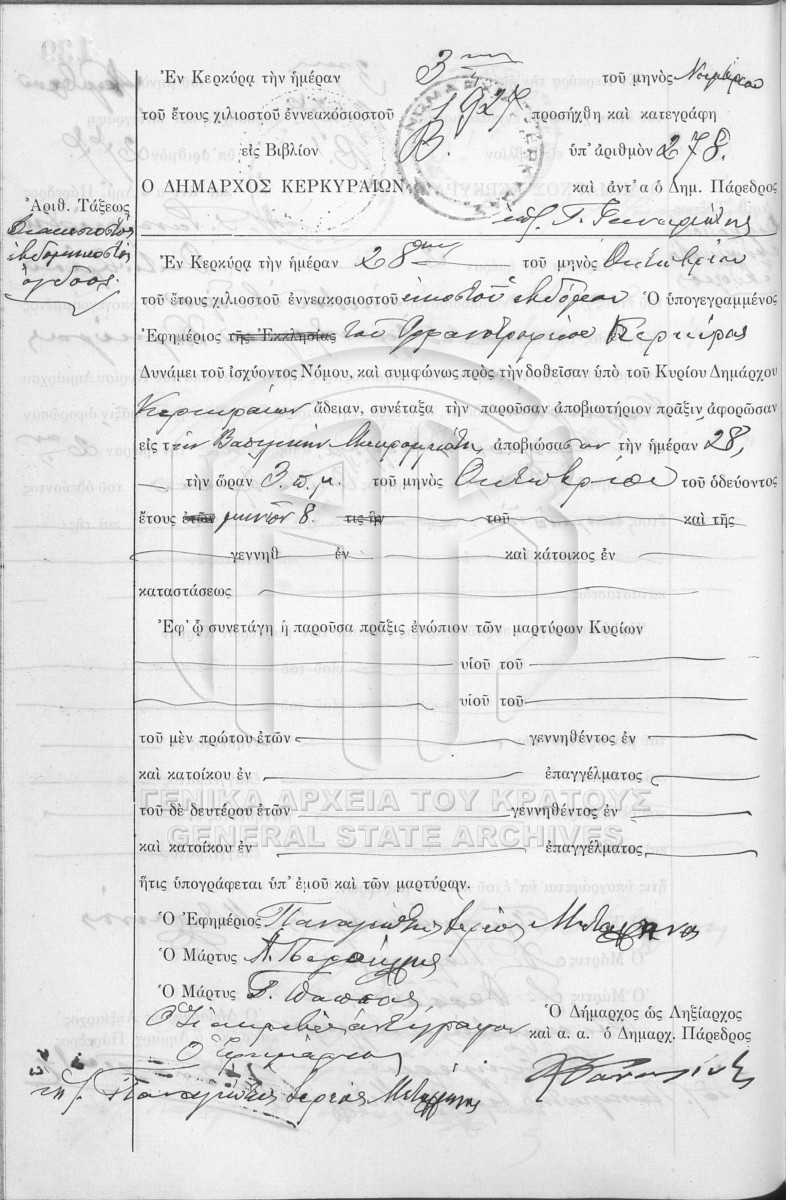 Ἐν Κερκύρᾳ τὴν ἡμέραν 3ην τοῦ μηνὸς Νοεμβρίου
τοῦ ἔτους χιλιοστοῦ ἐννεακοσιοστοῦ 1927 προσήχθη καὶ κατεγράφη
εἰς Βιβλίον Β. ὑπ' ἀριθμὸν 278.
Ο ΔΗΜΑΡΧΟΣ ΚΕΡΚΥΡΑΙΩΝ καὶ ἀντ' α ὁ Δημ. Πάρεδρος
Ἀριθ. Τάξεως
Διακοσιοστὸς
ἑβδομηκοστὸς
ὄγδοος.
Ἐν Κερκύρᾳ τὴν ἡμέραν 28ην τοῦ μηνὸς Ὀκτωβρίου
τοῦ ἔτους χιλιοστοῦ ἐννεακοσιοστοῦ εἰκοστοῦ ἑβδόμου Ὁ ὑπογεγραμμένος
Ἐφημέριος τῆς Ἐκκλησίας τοῦ Ὀρφανοτροφείου Κερκύρας
Δυνάμει τοῦ ἰσχύοντος Νόμου, καὶ συμφώνως πρὸς τὴν δοθεῖσαν ὑπὸ τοῦ Κυρίου Δημάρχου
Κερκυραίων ἄδειαν, συνέταξα τὴν παροῦσαν ἀποβιωτήριον πρᾶξιν ἀφορῶσαν
εἰς τὴν Βασιλικὴν Μαυρομμάτη, ἀποβιώσασαν τὴν ἡμέραν 28,
τὴν ὥραν 3 π. μ. τοῦ μηνὸς Ὀκτωβρίου τοῦ ὁδεύοντος
ἔτους ἐτῶν μηνῶν 8. τις ἦν τοῦ καὶ τῆς
γεννηθ ἐν καὶ κάτοικος ἐν
καταστάσεως
Ἐφ' ᾧ συνετάγη ἡ παροῦσα πρᾶξις ἐνώπιον τῶν μαρτύρων Κυρίων
υἱοῦ τοῦ
υἱοῦ τοῦ
τοῦ μὲν πρώτου ἐτῶν γεννηθέντος ἐν
καὶ κατοίκου ἐν ἐπαγγέλματος
τοῦ δὲ δευτέρου ἐτῶν γεννηθέντος ἐν
ΓΕΝΙΚΑ ΑΡΧΕΙΑ ΤΟΥ ΚΡΑΤΟΥΣ
GENERAL STATE ARCHIVES
καὶ κατοίκου ἐν ἐπαγγέλματος
ἥτις ὑπογράφεται ὑπ' ἐμοῦ καὶ τῶν μαρτύρων.
Ὁ Ἐφημέριος Παναγιώτης ἱερεὺς
Ὁ Μάρτυς Α.
Ὁ Μάρτυς Γ. Παππᾶς
Ὁ Δήμαρχος ὡς Ληξίαρχος
καὶ α. α. ὁ Δημαρχ. Πάρεδρος
ἀκριβὲς ἀντίγραφον
Ὁ Ἐφημέριος
Παναγιώτης ἱερεὺς